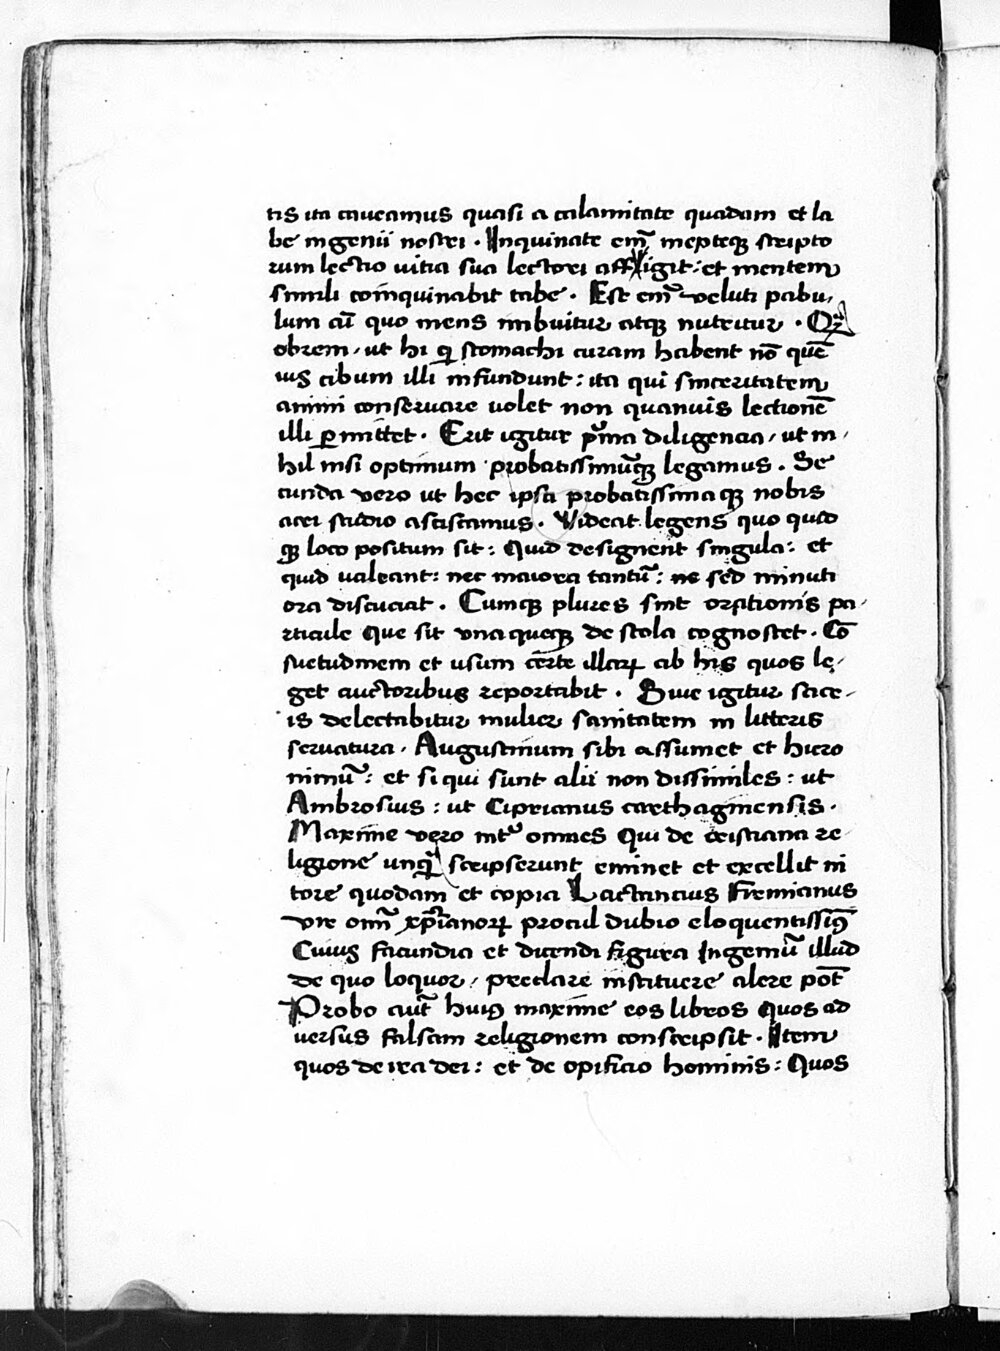 tis ita caueamus quasi a calamitate quadam et la
be ingenii nostri . Inquinate em̄ inepteqꝫ scripto
rum lectio uitia sua lectori affligit : et mentem
simili coinquinabit tabe . Est em̄ veluti pabu,
lum aī quo mens imbuitur atqꝫ nutritur . Qꝫ
obrem , ut hi qi stomachi curam habent nō quē
uis cibum illi infundunt : ita qui sinceritatem
animi conseruare uolet non quanuis lectionē
illi ꝑmittet . Erit igitur pͥma diligencia , ut in ,
hil nisi optimum probatissimūqꝫ legamus . Se
cunda vero ut hec ipsa probatissima qꝫ nobis
acri studio asciscamus . Videat legens quo quid
qꝫ loco positum sit : Quid designent singula : et
quid ualeant : nec maiora tantū : ne sed minuti
ora discuciat . Cumqꝫ plures sint orationis pa ,
rticule Que sit vna queqꝫ de scola cognoscet . Cō
suetudinem et usum certe illaꝝ ab his quos le ,
get auctoribus reportabit . Siue igitur sacr ,
is delectabitur mulier sanitatem in litteris
seruatura . Augustinum sibi assumet et hiero
nimū : et si qui sunt alii non dissimiles : ut
Ambrosius : ut Ciprianus carthaginensis .
Maxime vero int̄ omnes Qui de cristiana re
ligione unqꝫ scripserunt eminet et excellit ni
tore quodam et copia Lactancius Fremianus
vir oīm xp̄ianoꝝ procul dubio eloquentissiꝰ
Cuius facundia et dicendi figura Ingeniū illud
de quo loquor , preclare instituere alere pōt
Probo aut̄ huiꝰ maxime eos libros Quos ad
uersus falsam religionem conscripsit . Item
quos de ira dei : et de opificio hominis : Quos